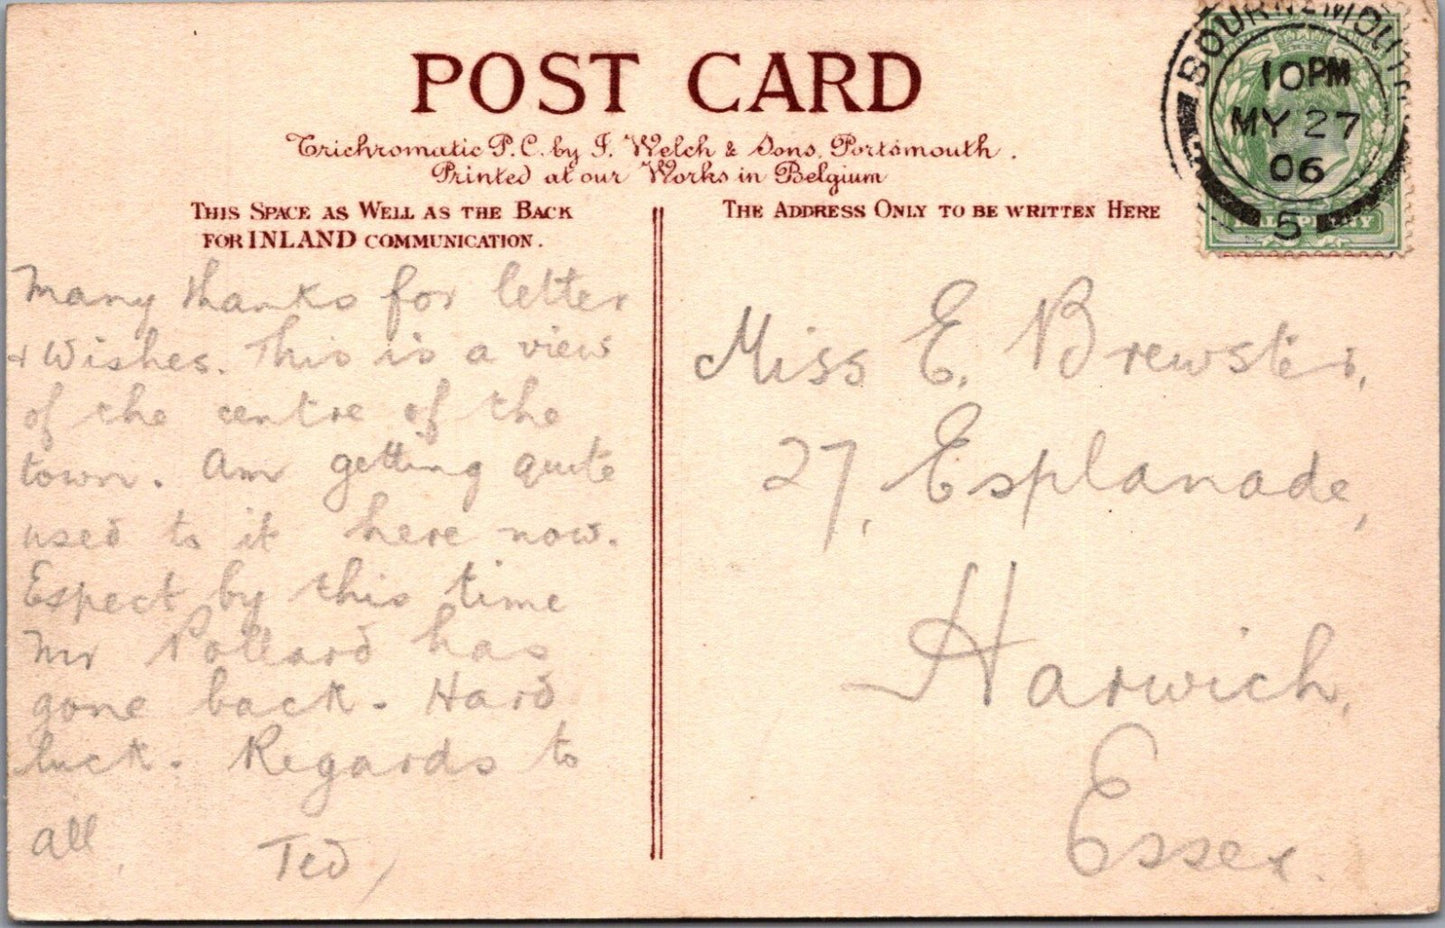 POST CARD
Trichromatic P.C. by J. Welch & Sons, Portsmouth.
Printed at our Works in Belgium
THIS SPACE AS WELL AS THE BACK
FOR INLAND COMMUNICATION.
Many thanks for letter
+ Wishes. This is a view
of the centre of the
town. Am getting quite
used to it here now.
Expect by this time
Mr Pollard has
gone back. Hard
luck. Regards to
all,
Ted/
THE ADDRESS ONLY TO BE WRITTEN HERE
Miss E. Brewster,
27, Esplanade,
Harwich,
Essex.
BOURNEMOUTH
10PM
MY 27
06
5
HALFPENNY